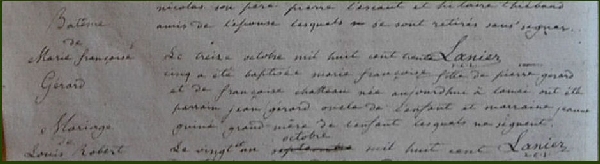 nicolas son père pierre l'escaut et hilaire thibaud
amis de l'épouse lesquels ne se sont retirés sans signer
Batême
de
Marie françoise
Gérard
Le treize octobre mil huit cent trente Lanier
cinq a été baptisée marie françoise fille de pierre gerard
et de françoise chateau née aujourd'hui à lancé ont été
parrain jean gérard oncle de l'enfant et marraine jeanne
quiné grand mère de l'enfant lesquels ne signent
Mariage
de
Louis Robert
octobre
Le vingt un septembre mil huit cent Lanier